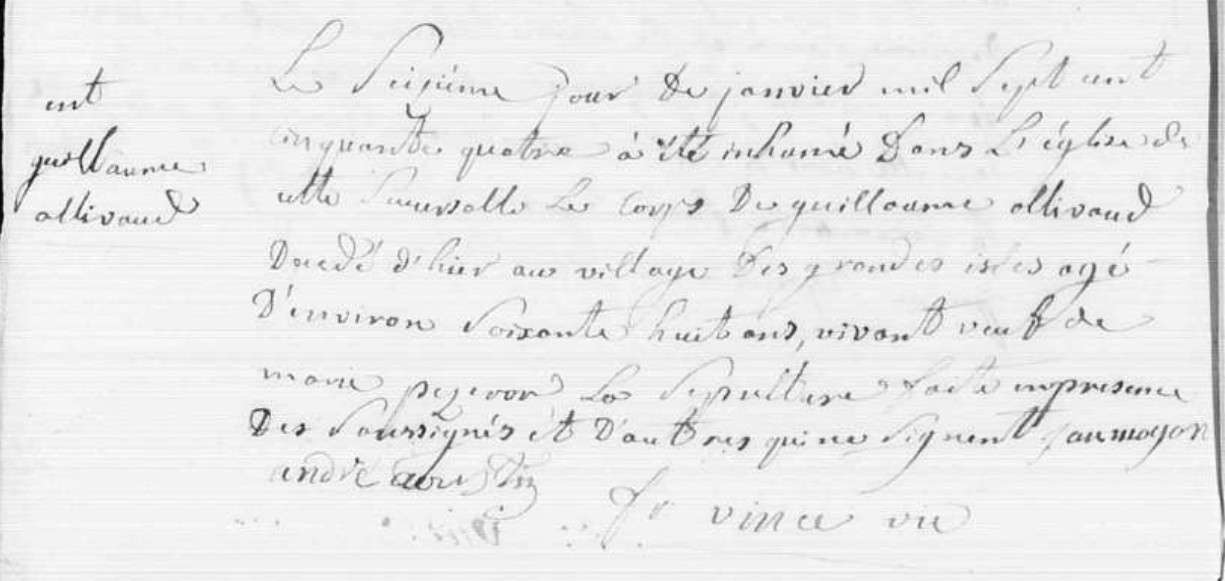 ent
guillaume
ollivaud
Le Seizième jour De janvier mil Sept cent
cinquante quatre à été inhumé Dans L'église de
cette Succursalle Le Corps De guillaume ollivaud
Decedé d'hier au village Des grandes isles agé
D'environ Soixante huit ans, vivant veuf de
marie La Sepulture faite en presence
Des Soussignés et D'autres qui ne Signent
andré
fr vince vic